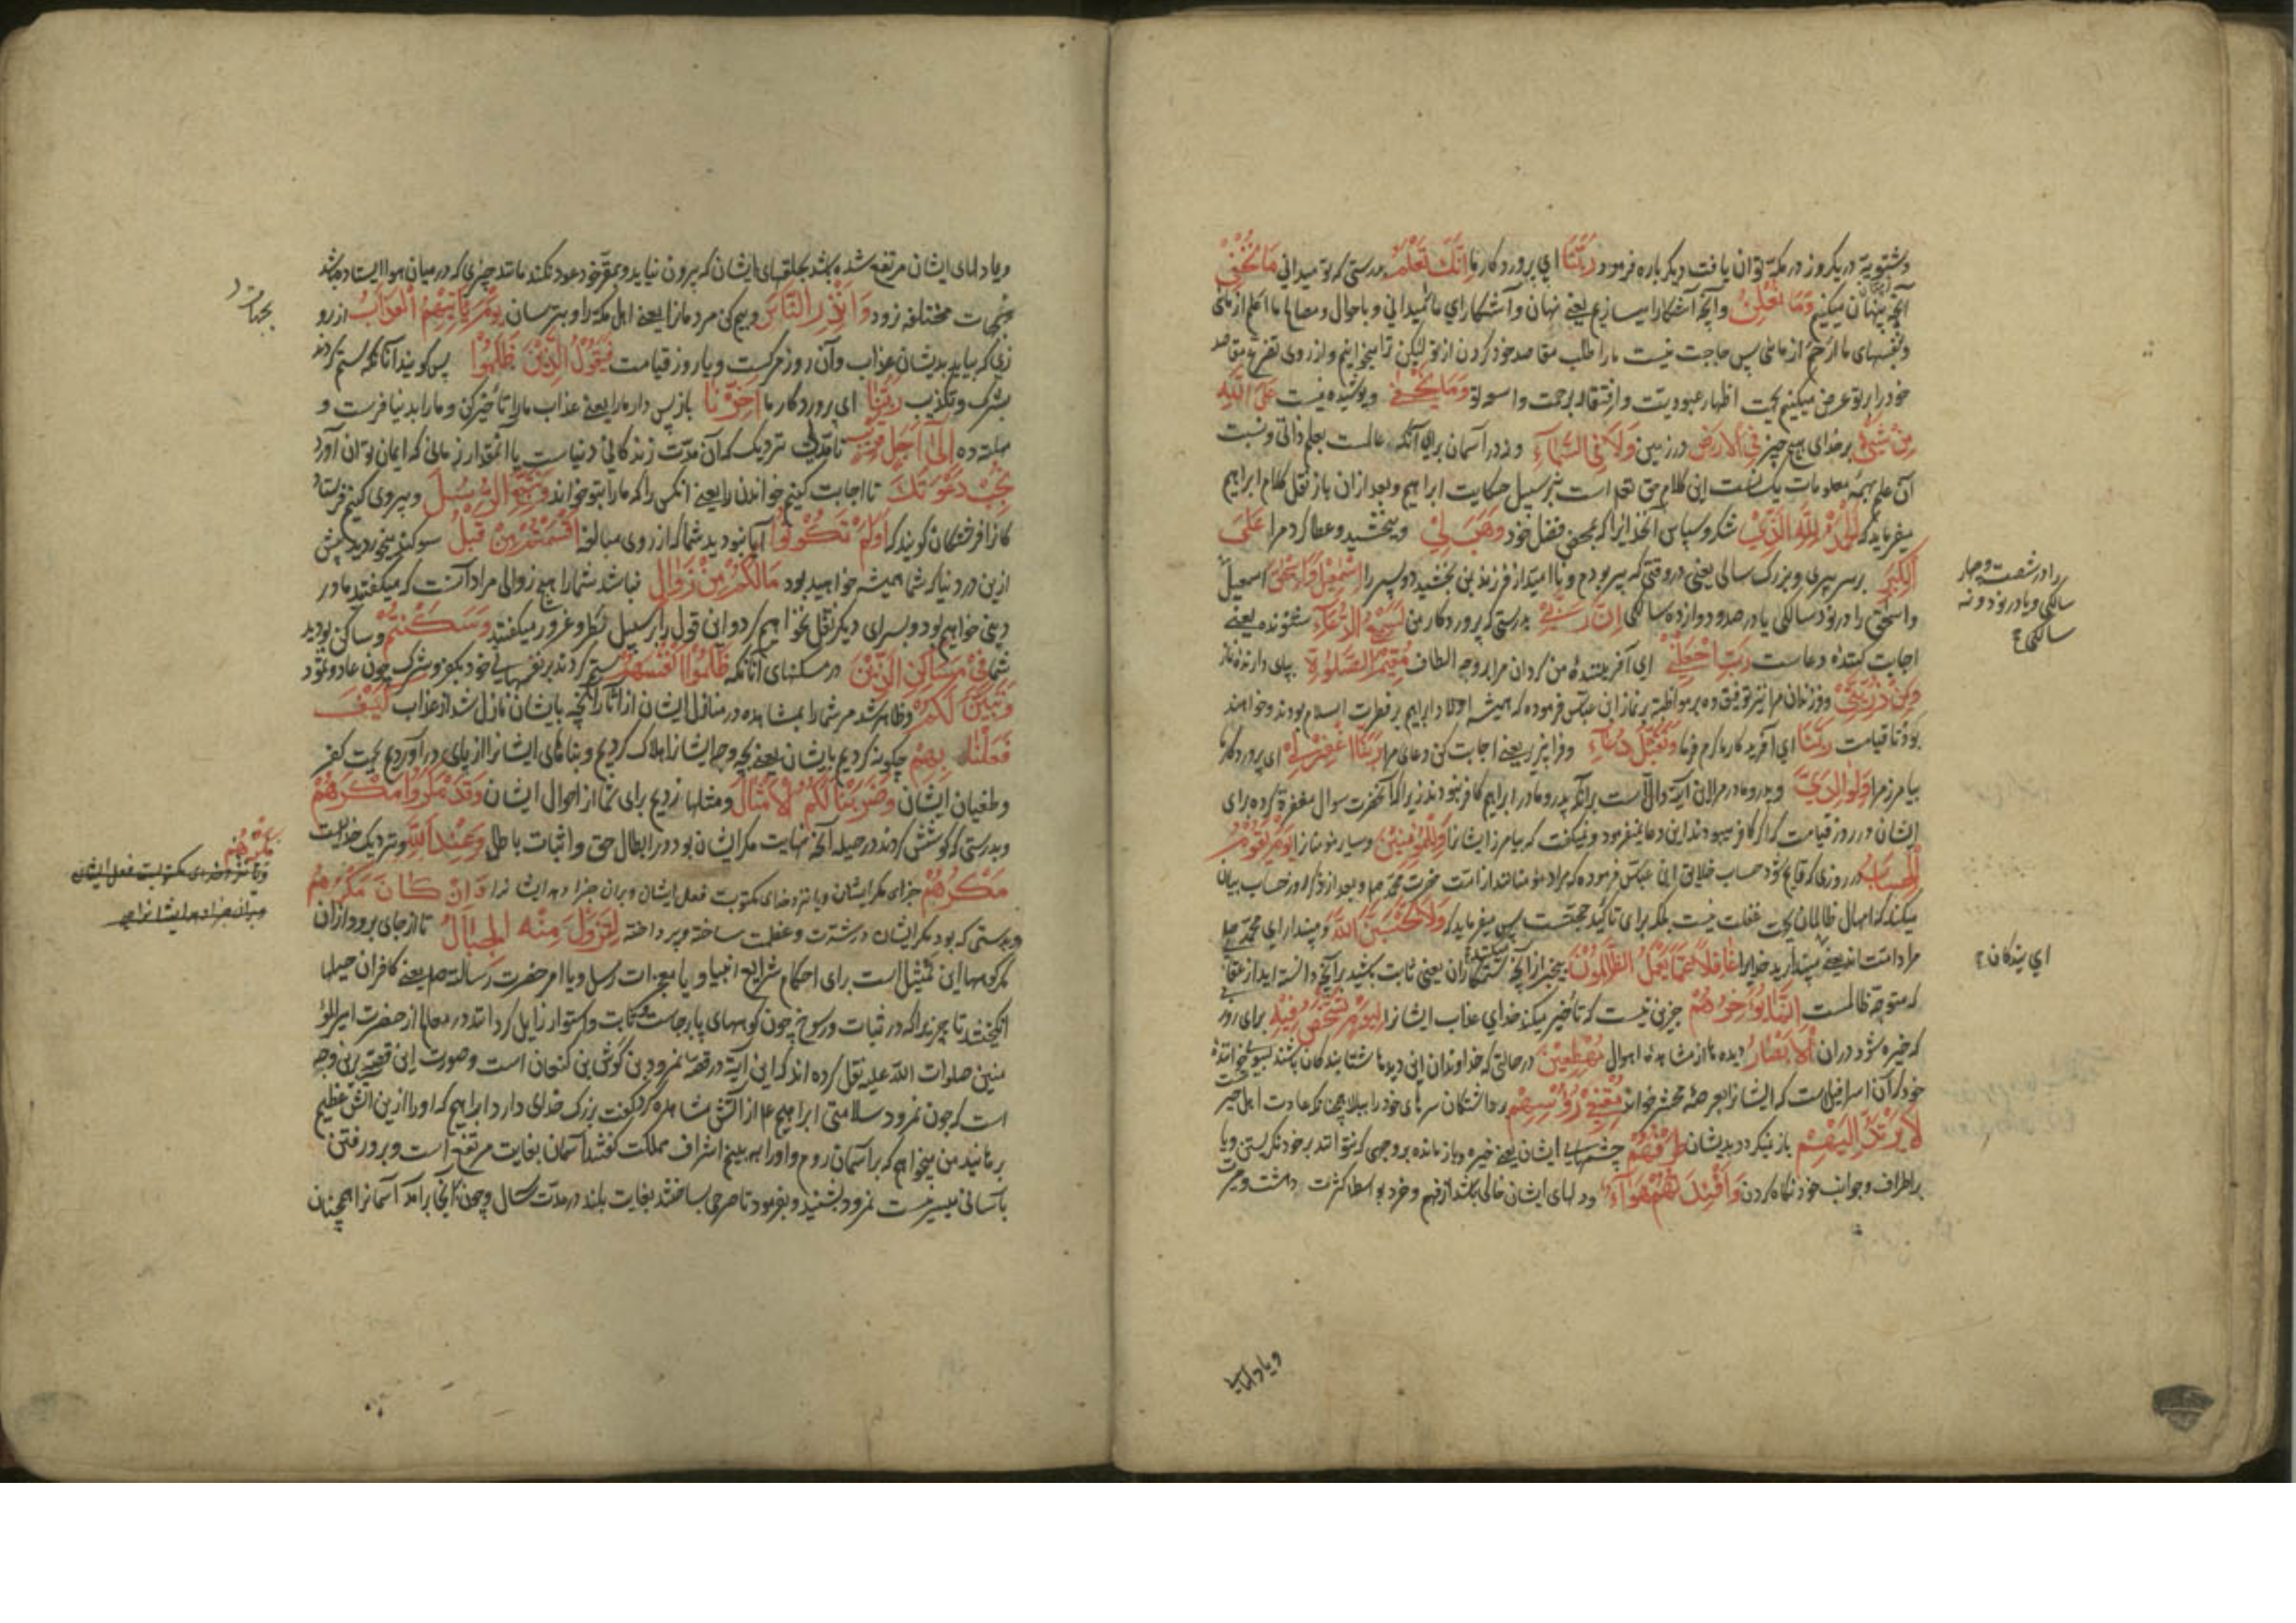 وشتویة در یکروز در مکه توان یافت دیگر باره فرمود رَبَّنَا ای پروردکار ما اِنَّكَ تَعْلَمُ بدرستی که تو میدانی مَا نُخْفِی
آنچه پنهان میکنیم وَمَا نُعْلِنُ وآنچه آشکارا میسازیم یعنی نهان وآشکارای ما میدانی وباحوال ومصالح ما اعلم از مائی
وبنفسهای ما ارحم از مائی پس حاجت نیست ما را طلب مقاصد خود کردن از تو لیکن ترا میخوانیم واز روی تضرع مقاصد
خود را بر تو عرض میکنیم بجهت اظهار عبودیت وافتقار برحمت واسعه تو وَمَا یَخْفٰی وپوشیده نیست عَلَی اللّٰهِ
مِنْ شَیْءٍ بر خدای هیچ چیز فِی الْاَرْضِ در زمین وَلَا فِی السَّمَآءِ ونه در آسمان برای آنکه عالمست بعلم ذاتی ونسبت
آن علم بهمه معلومات یکسانست این کلام حق تعالی است بر سبیل حکایت ابراهیم وبعد ازان باز نقل کلام ابراهیم
میفرماید که اَلْحَمْدُ لِلّٰهِ الَّذِیْ شکر وسپاس آن خدایرا که بمحض فضل خود وَهَبَ لِیْ وببخشید وعطا کرد مرا عَلَی
الْکِبَرِ بر سر پیری وبزرک سالی یعنی در وقتی که پیر بودم وناامید از فرزند بمن بخشید دو پسر را اِسْمٰعِیْلَ وَاِسْحٰقَ اسمعیل
را در شصت وچهار
سالکی ویا در نود ونه
سالکی
واسحق را در نود سالکی یا در صد ودوازده سالکی اِنَّ رَبِّیْ بدرستی که پروردکار من لَسَمِیْعُ الدُّعَآءِ شنونده یعنی
اجابت کننده دعاست رَبِّ اجْعَلْنِیْ ای آفریننده من کردان مرا بوجه الطاف مُقِیْمَ الصَّلٰوةِ بپای دارنده نماز
وَمِنْ ذُرِّیَّتِیْ وفرزندان مرا نیز توفیق ده بر مواظبت بر نماز ابن عباس فرموده که همیشه اولاد ابراهیم بر فطرت اسلام بودند وخواهند
بود تا قیامت رَبَّنَا ای آفریدکار ما کرم فرما وَتَقَبَّلْ دُعَآءِ وفرا پذیر یعنی اجابت کن دعای مرا رَبَّنَا اغْفِرْ لِیْ ای پروردکار ما
بیامرز مرا وَلِوَالِدَیَّ وپدر ومادر مرا این آیة دالست بر آنکه پدر ومادر ابراهیم کافر نبودند زیرا که آنحضرت سوال مغفرة کرده برای
ایشان در روز قیامت که اگر کافر میبودند این دعا نمیفرمود ونمیکفت که بیامرز ایشانرا وَلِلْمُؤْمِنِیْنَ وبیامرز مومنانرا یَوْمَ یَقُوْمُ
الْحِسَابُ در روزی که قایم شود حساب خلایق ابن عباس فرموده که مراد مومنانند از امت حضرت محمد ص وبعد از ذکر روز حساب بیان
میکند که امهال ظالمان بجهت غفلت نیست بلکه برای تاکید حجتست پس میفرماید که وَلَا تَحْسَبَنَّ اللّٰهَ ومپندار ای محمد ص
مراد امت اند یعنی مپندارید خدایرا غَافِلًا عَمَّا یَعْمَلُ الظّٰلِمُوْنَ بیخبر از آنچه میکنند ستمکاران یعنی ثابت باشید بر آنچه دانسته اید از عقاب
ای بندکان
که متوجه ظالمست اِنَّمَا یُؤَخِّرُهُمْ جز این نیست که تأخیر میکند خدای عذاب ایشانرا لِیَوْمٍ تَشْخَصُ فِیْهِ برای روزی
که خیره شود دران الْاَبْصَارُ دیده ها از مشاهده اهوال مُهْطِعِیْنَ در حالتی که خداوندان این دیده ها شتابندکان باشند بسوی خواننده
خود که آن اسرافیلست که ایشانرا بعرصه محشر خواند مُقْنِعِیْ رُءُوْسِهِمْ برداشتکان سرهای خود را ببالا چنانکه عادت اهل حیرتست
لَا یَرْتَدُّ اِلَیْهِمْ باز نیکردد بدیشان طَرْفُهُمْ چشمهای ایشان یعنی خیره وباز مانده بر وجهی که نتوانند بر خود نکریستن ویا
بر اطراف وجوانب خود نکاه کردن وَاَفْئِدَتُهُمْ هَوَآءٌ ودلهای ایشان خالی باشد از فهم وخرد بواسطه کثرت دهشت وحیرت
ویا دلهای
ویا دلهای ایشان مرتفع شده باشد بحلقهای ایشان که بیرون نیاید وبمقر خود عود نکند مانند چیزی که در میان هوا ایستاده باشد
وبجهات مختلفه رود وَاَنْذِرِ النَّاسَ وبیم کن مردمانرا یعنی اهل مکه را وبترسان یَوْمَ یَاْتِیْهِمُ الْعَذَابُ از روزی
زی که بیاید بدیشان عذاب وآن روز مرکست ویا روز قیامت فَیَقُوْلُ الَّذِیْنَ ظَلَمُوْا پس کویند آنانکه ستم کردند
بشرک وتکذیب رَبَّنَا ای پروردکار ما اَخِّرْنَا باز پس دار ما را یعنی عذاب ما را تأخیر کن وما را بدنیا فرست و
مهلت ده اِلٰی اَجَلٍ قَرِیْبٍ تا مدتی نزدیک که آن مدت زندکانی دنیاست یا آنمقدار زمانی که ایمان توان آورد
نُجِبْ دَعْوَتَكَ تا اجابت کنیم خواندن ترا یعنی آنکس را که ما را بتو خواند وَنَتَّبِعِ الرُّسُلَ وپیروی کنیم فرستاد
کانرا فرشتکان کویند که اَوَلَمْ تَکُوْنُوْا آیا نبودید شما که از روی مبالغه اَقْسَمْتُمْ مِنْ قَبْلُ سوکند میخوردید پیش
ازین در دنیا که شما همیشه خواهید بود مَا لَکُمْ مِنْ زَوَالٍ نباشد شما را هیچ زوالی مراد آنست که میکفتند ما در
دنیی خواهیم بود وبسرای دیکر نقل نخواهیم کرد واین قول را بر سبیل بطر وغرور میکفتند وَسَکَنْتُمْ وساکن بودید
شما فِیْ مَسَاکِنِ الَّذِیْنَ در مسکنهای آنانکه ظَلَمُوْا اَنْفُسَهُمْ ستم کردند بر نفسهای خود بکفر وشرک چون عاد وثمود
وَتَبَیَّنَ لَکُمْ وظاهر شد مر شما را بمشاهده در منازل ایشان از آثار آنچه بایشان نازل شد از عذاب کَیْفَ
فَعَلْنَا بِهِمْ چکونه کردیم بایشان یعنی بچه وجه ایشانرا هلاک کردیم وبناهای ایشانرا از پای در آوردیم بجهت کفر
وطغیان ایشان وَضَرَبْنَا لَکُمُ الْاَمْثَالَ ومثلها زدیم برای شما از احوال ایشان وَقَدْ مَکَرُوْا مَکْرَهُمْ
وبدرستی که کوشش کردند در حیله آنچه نهایت مکر ایشان بود در ابطال حق واثبات باطل وَعِنْدَ اللّٰهِ ونزدیک خداست
مَکْرُهُمْ جزای مکر ایشان ویا نزد خدای مکتوبست فعل ایشان وبران جزا دهد ایشانرا وَاِنْ کَانَ مَکْرُهُمْ
مَکْرُهُمْ
ویا نزد خدای مکتوبست فعل ایشان
وبران جزا دهد ایشانرا
وبدرستی که بود مکر ایشان در شدت وعظمت ساخته وپرداخته لِتَزُوْلَ مِنْهُ الْجِبَالُ تا از جای برود ازان
مکر کوهها این تمثیل است برای احکام شرایع انبیا ویا معجزات رسل ویا امر حضرت رسالت ص یعنی کافران حیلها
انکیختند تا ببرند آنرا که در ثبات ورسوخ چون کوههای پابرجاست وثابت واستوار زایل کردانند در معالم از حضرت امیرالمؤ
منین صلوات الله علیه نقل کرده اند که این آیة در قصه نمرود بن کوش بن کنعان است وصورت این قصه برین وجه
است که چون نمرود سلامتی ابراهیم ع از آتش مشاهده کرد کفت بزرک خدای دارد ابراهیم که او را ازین آتش عظیم
برهانید من میخواهم که بر آسمان روم واو را ببینم اشراف مملکت کفتند آسمان بغایت مرتفع است وبرو رفتن
بآسانی میسر نیست نمرود نشنید وبفرمود تا صرحی بساختند بغایت بلند در مدت سه سال وچون بآنجا برآمد آسمانرا همچنان